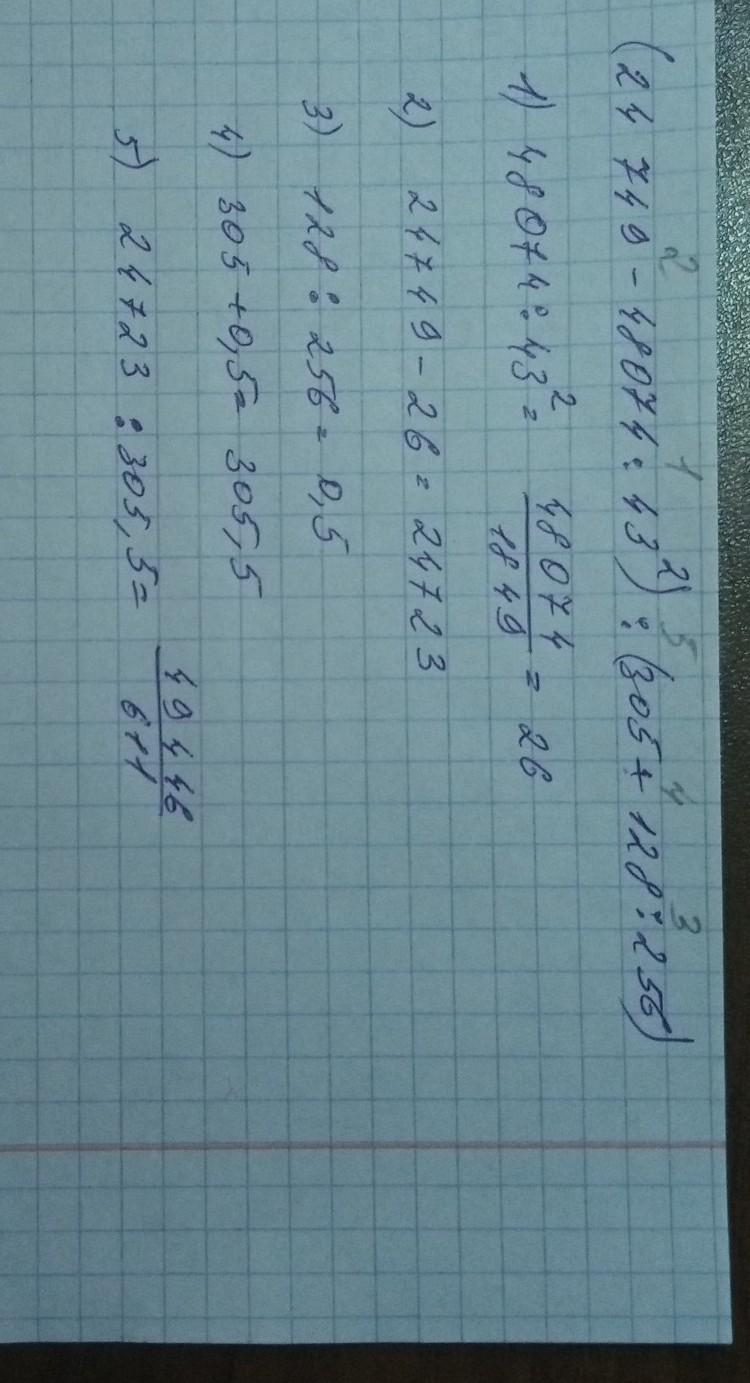 2 1 5 4 3
(24 749 - 48074 : 43²) : (305 + 128 : 256)
1) 48074 : 43² = 48074/1849 = 26
2) 24749 - 26 = 24723
3) 128 : 256 = 0,5
4) 305 + 0,5 = 305,5
5) 24723 : 305,5 = 49446/611